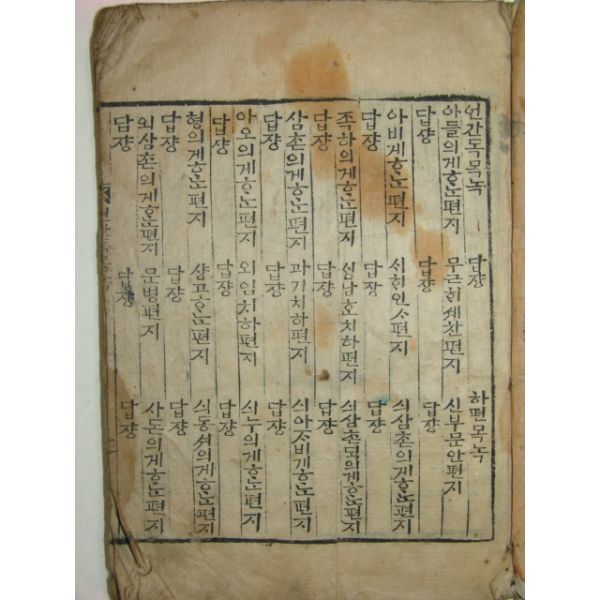 언간독목녹
아들의게ᄒᆞᄂᆞᆫ편지
답쟝
아비게ᄒᆞᄂᆞᆫ편지
답쟝
족하의게ᄒᆞᄂᆞᆫ편지
답쟝
삼촌의게ᄒᆞᄂᆞᆫ편지
답쟝
아오의게ᄒᆞᄂᆞᆫ편지
답쟝
형의게ᄒᆞᄂᆞᆫ편지
답쟝
외삼촌의게ᄒᆞᄂᆞᆫ편지
답쟝
답쟝
무근ᄒᆡ셰찬편지
답쟝
ᄉᆡᄒᆡ인ᄉᆞ편지
답장
ᄉᆡᆼ남ᄒᆞ치하편지
답쟝
과거치하편지
답쟝
외임치하편지
답쟝
샹고ᄒᆞᄂᆞᆫ편지
답쟝
문병편지
답쟝
하편목녹
신부문안편지
답쟝
싀삼촌의게ᄒᆞᄂᆞᆫ편지
답쟝
싀삼촌ᄃᆡᆨ의게ᄒᆞᄂᆞᆫ편지
답쟝
싀아ᄌᆞ비게ᄒᆞᄂᆞᆫ편지
답쟝
싀누의게ᄒᆞᄂᆞᆫ편지
답쟝
싀동셔의게ᄒᆞᄂᆞᆫ편지
답쟝
사돈의게ᄒᆞᄂᆞᆫ편지
답쟝